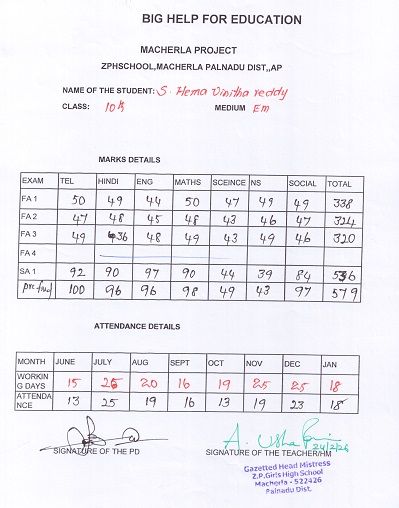 BIG HELP FOR EDUCATION
MACHERLA PROJECT
ZPHSCHOOL,MACHERLA PALNADU DIST,,AP
NAME OF THE STUDENT: S. Hema Vinitha reddy
CLASS: 10th MEDIUM Em
MARKS DETAILS
EXAM TEL HINDI ENG MATHS SCEINCE NS SOCIAL TOTAL
FA 1 50 49 44 50 47 49 49 338
FA 2 47 48 45 48 43 46 47 324
FA 3 49 36 48 49 43 49 46 320
FA 4
SA 1 92 90 97 90 44 39 84 536
100 96 96 98 49 43 97 579
ATTENDANCE DETAILS
MONTH JUNE JULY AUG SEPT OCT NOV DEC JAN
WORKIN
G DAYS 15 26 20 16 19 25 25 18
ATTENDA
NCE 13 25 19 16 13 19 23 18
SIGNATURE OF THE PD SIGNATURE OF THE TEACHER/HM
Gazetted Head Mistress
Z.P.Girls High School
Macherla - 522426
Palnadu Dist.